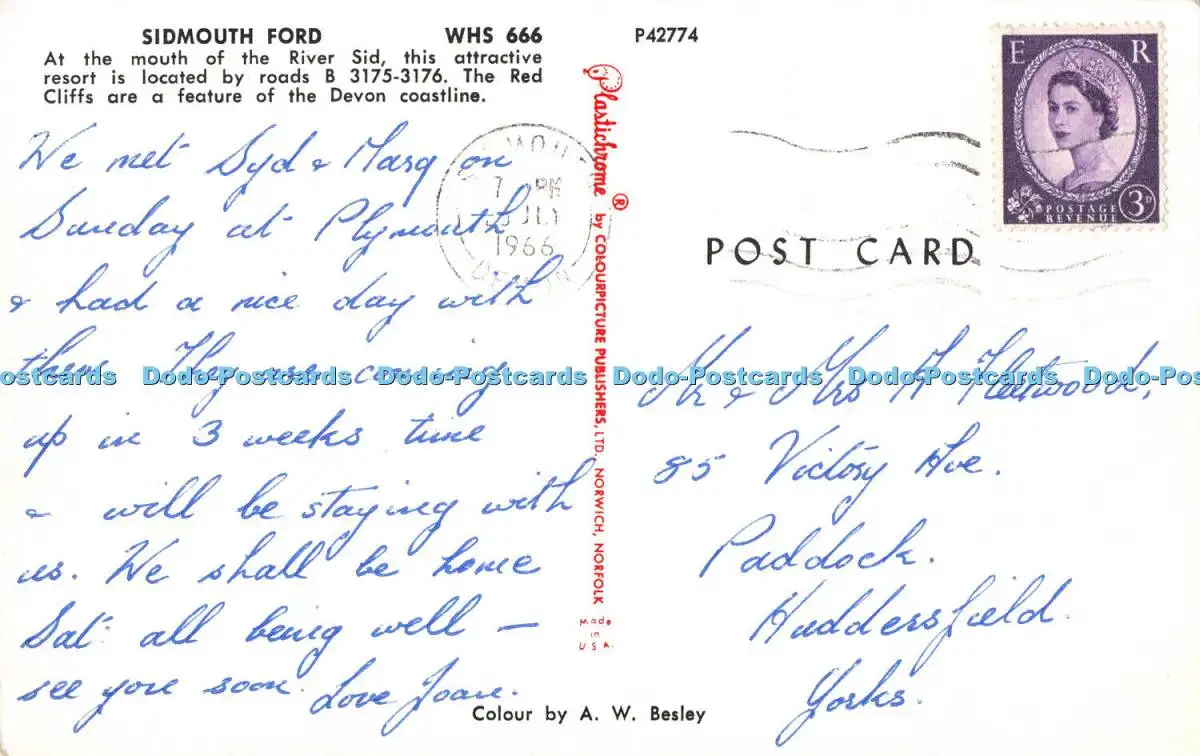 SIDMOUTH FORD WHS 666 P42774
At the mouth of the River Sid, this attractive
resort is located by roads B 3175-3176. The Red
Cliffs are a feature of the Devon coastline.
We met Syd & Marg on
Sunday at Plymouth
& had a nice day with
them. They are coming
up in 3 weeks time
& will be staying with
us. We shall be home
Sat: all being well —
see you soon. Love Joan.
Plastichrome ® by COLOURPICTURE PUBLISHERS, LTD. NORWICH, NORFOLK
Made
in
U S A.
7 PM
JLY
1966
DEVON
E R
POSTAGE
REVENUE
3D
POST CARD
Mr & Mrs Fleetwood,
85 Victory Ave.
Paddock.
Huddersfield.
Yorks.
Colour by A. W. Besley
ostcards Dodo-Postcards Dodo-Postcards Dodo-Postcards Dodo-Postcards Dodo-Postc